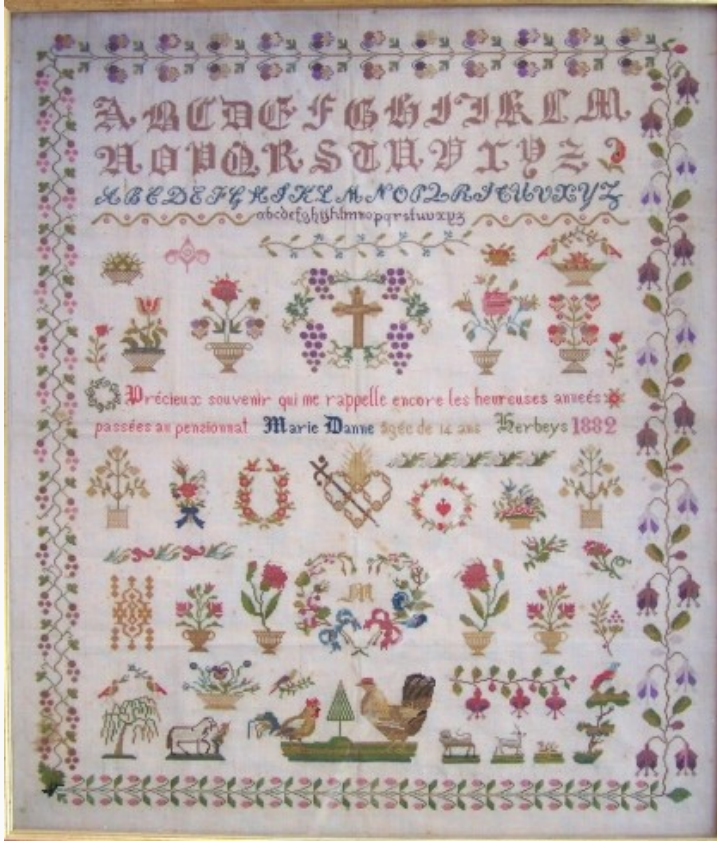 A B C D E F G H I J K L M
N O P Q R S T U V X Y Z
A B C D E F G H I K L M N O P Q R S T U V X Y Z
Précieux souvenir qui me rappelle encore les heureuses anneés
passées au pensionnat Marie Danne âgée de 14 ans Herbeys 1882
M